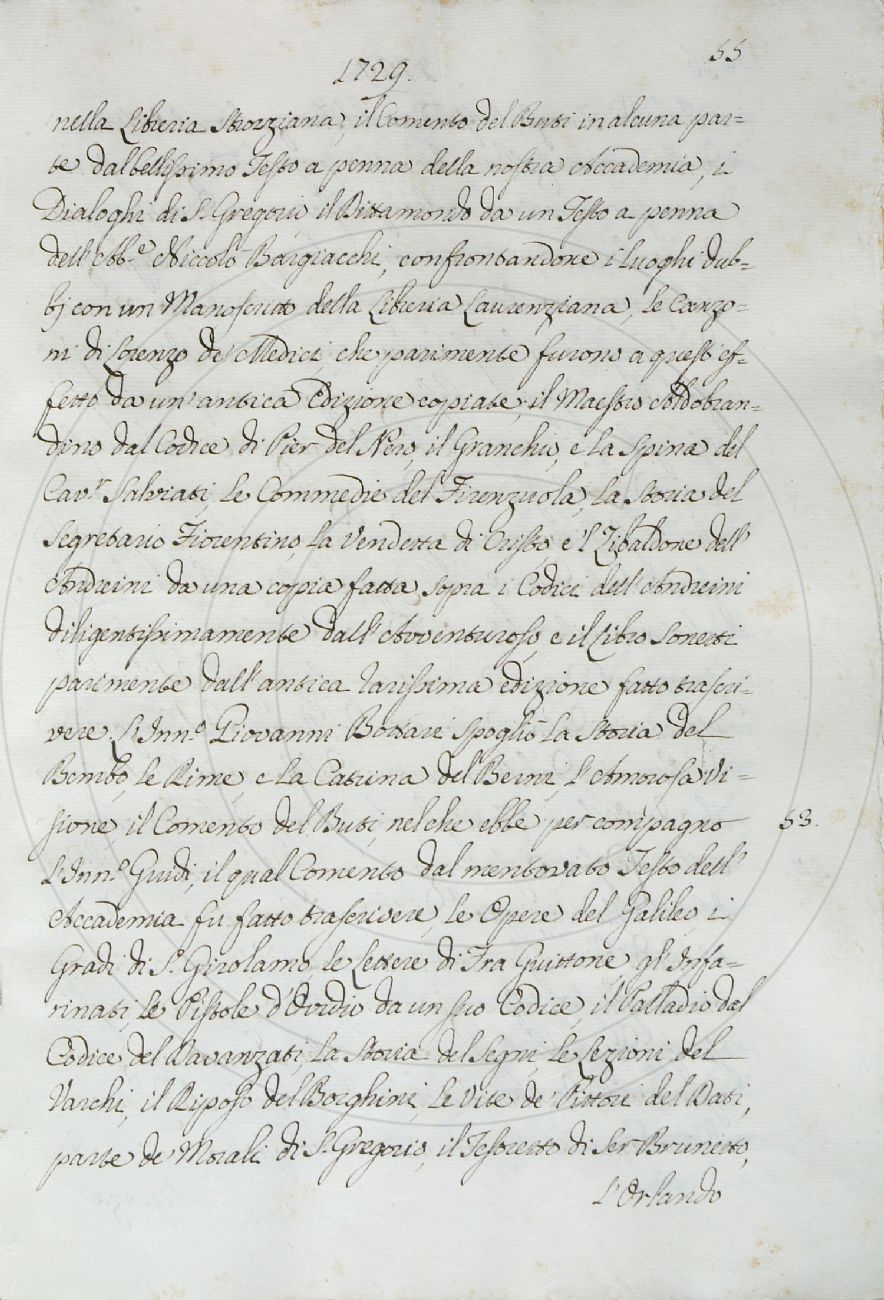 55
1729.
nella Libreria Strozziana, il Comento del Buti in alcuna par=
te dal bellissimo Testo a penna della nostra Accademia, i
Dialoghi di S. Gregorio, il Dittamondo da un Testo a penna
dell'Ab.e Niccolò Bargiacchi, confrontandone i luoghi dub=
bj con un Manoscritto della Libreria Laurenziana, le Canzo=
ni di Lorenzo de' Medici, che parimente furono a quest'ef=
fetto da un'antica Edizione copiate; il Maestro Aldobran=
dino dal Codice di Pier del Nero, il Granchio, e la Spina del
Cav.r Salviati, le Commedie del Firenzuola, la Storia del
Segretario Fiorentino, la Vendetta di Cristo, e 'l Zibaldone dell'
Andreini da una copia fatta sopra i Codici dell'Andreini
diligentissimamente dall'Avventuroso, e il Libro Sonetti
parimente dall'antica rarissima edizione fatto trascri=
vere. L'Inn.o Giovanni Bottari spogliò la Storia del
Bembo, le Rime, e la Catrina del Berni, l'Amorosa Vi=
sione, il Comento del Buti, nel che ebbe per compagno
53.
l'Inn.o Guidi, il qual Comento dal mentovato Testo dell'
Accademia fu fatto trascrivere, le Opere del Galileo, i
Gradi di S. Girolamo, le Lettere di Fra Guittone, gl'Infa=
rinati, le Pistole d'Ovidio da un suo Codice, il Palladio dal
Codice del Davanzati, la Storia del Segni, le Lezioni del
Varchi, il Riposo del Borghini, le Vite de' Pittori del Dati,
parte de' Morali di S. Gregorio, il Tesoretto di Ser Brunetto,
l'Orlando